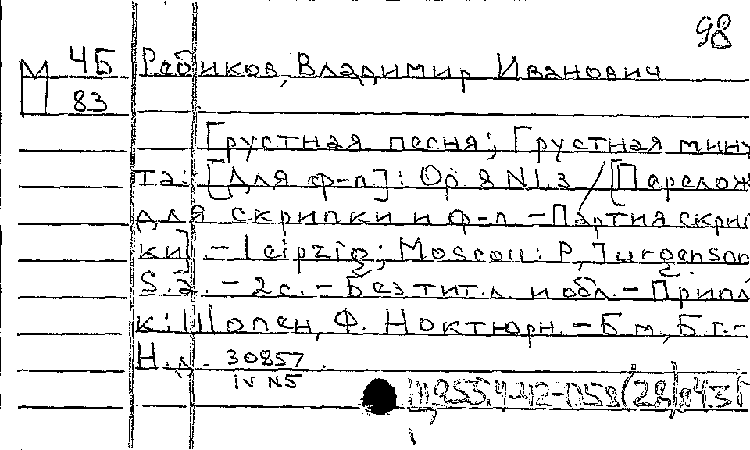 98
М 4Б Ребиков, Владимир Иванович
П 83
Грустная песня; Грустная мину
та: [Для ф-п]: Op. 8 N1.3 / [Перелож
для скрипки и ф-п. - Партия скрип
ки]. - Leipzig; Moscou: P. Jurgenson
S.a. - 2 с. - Без тит.л. и обл. - Припл
к: Шопен, Ф. Ноктюрн. - Б.м., Б.г. -
Н.д. 30857
IV N5